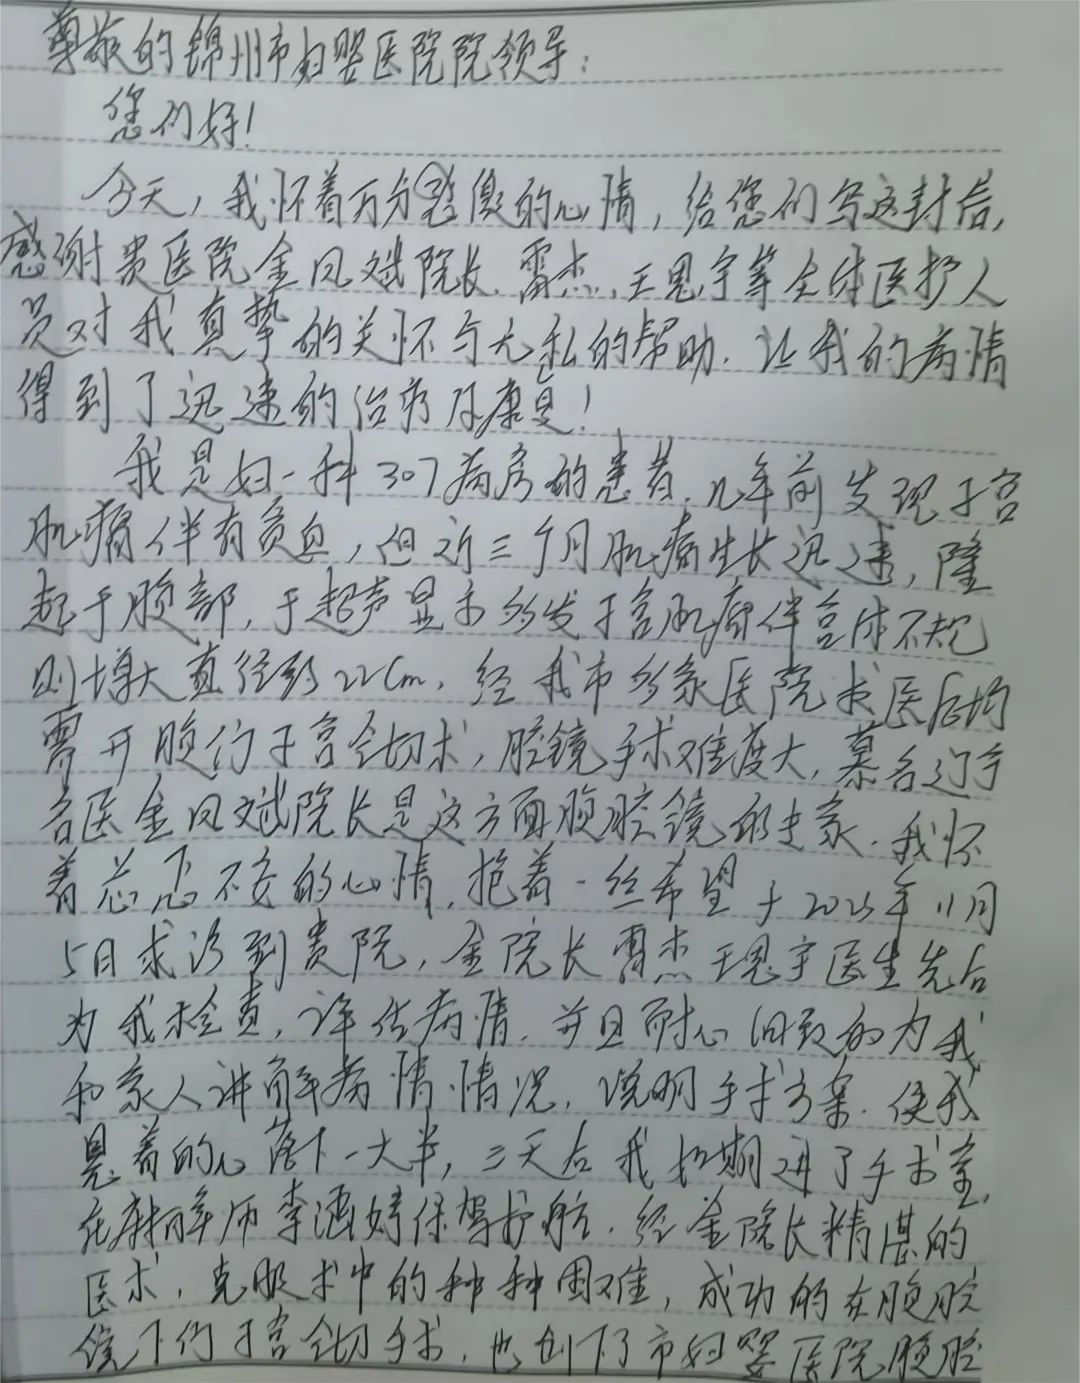 尊敬的锦州市妇婴医院院领导:
您们好!
今天,我怀着万分感激的心情,给您们写这封信,
感谢贵医院金凤斌院长、雷杰、王思宇等全体医护人
员对我真挚的关怀与无私的帮助.让我的病情
得到了迅速的治疗及康复!
我是妇一科307病房的患者.几年前发现子宫
肌瘤伴有贫血,但近三个月肌瘤生长迅速,隆
起于腹部,于超声显示多发子宫肌瘤伴宫体不规
则增大直径约22cm.经我市多家医院求医后均
需开腹行子宫全切术,腔镜手术难度大,慕名辽宁
名医金凤斌院长是这方面腹腔镜的专家.我怀
着忐忑不安的心情.抱着一丝希望于2025年11月
5日求诊到贵院,金院长雷杰王思宇医生先后
为我检查,评估病情.并且耐心细致的为我
和家人讲解病情情况.说明手术方案.使我
悬着的心落下一大半,三天后我如期进了手术室,
在麻醉师李涵婷保驾护航.经金院长精湛的
医术,克服术中的种种困难,成功的在腹腔
镜下行子宫全切手术.也创下了市妇婴医院腹腔